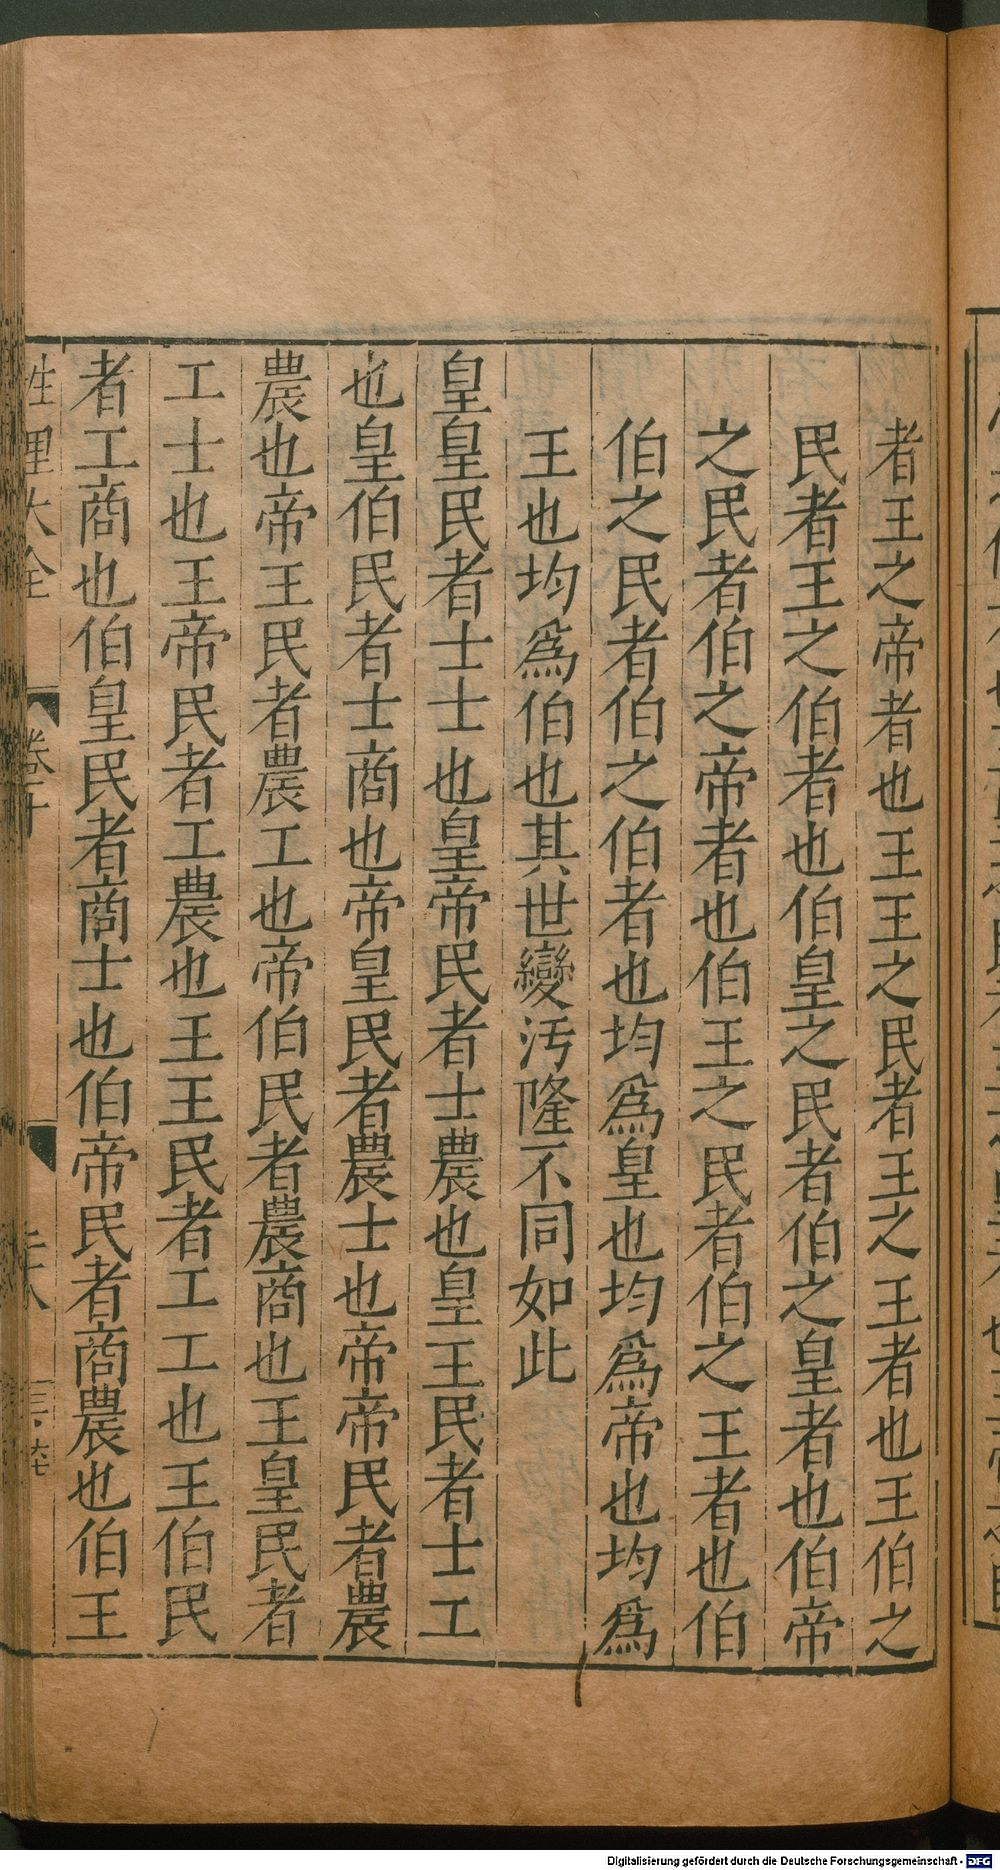 者王之帝者也王王之民者王之王者也王伯之
民者王之伯者也伯皇之民者伯之皇者也伯帝
之民者伯之帝者也伯王之民者伯之王者也伯
伯之民者伯之伯者也均爲皇也均爲帝也均爲
王也均爲伯也其世變汚隆不同如此
皇皇民者士士也皇帝民者士農也皇王民者士工
也皇伯民者士商也帝皇民者農士也帝帝民者農
農也帝王民者農工也帝伯民者農商也王皇民者
工士也王帝民者工農也王王民者工工也王伯民
者工商也伯皇民者商士也伯帝民者商農也伯王
性理大全 卷十
Digitalisierung gefördert durch die Deutsche Forschungsgemeinschaft - DFG